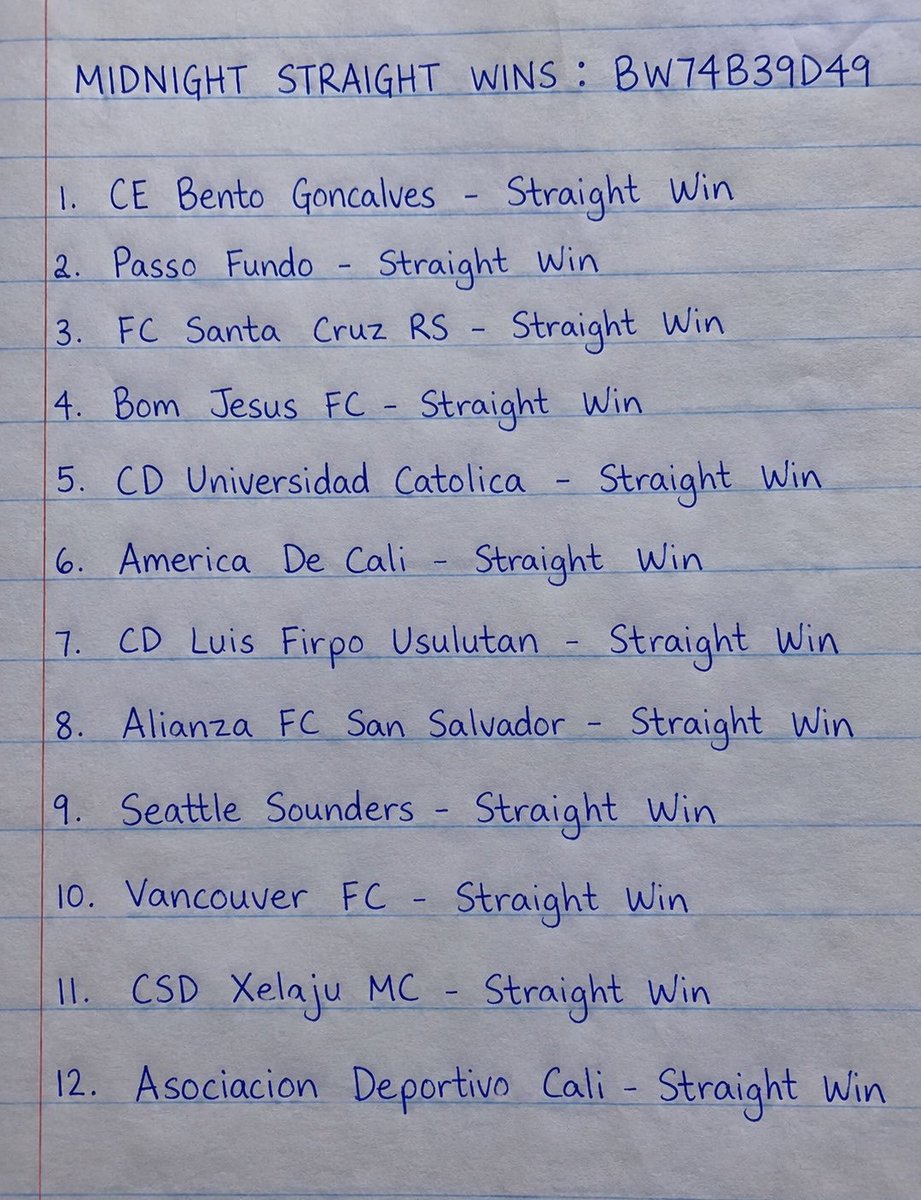 MIDNIGHT STRAIGHT WINS: BW74B39D49
1. CE Bento Goncalves - Straight Win
2. Passo Fundo - Straight Win
3. FC Santa Cruz RS - Straight Win
4. Bom Jesus FC - Straight Win
5. CD Universidad Catolica - Straight Win
6. America De Cali - Straight Win
7. CD Luis Firpo Usulutan - Straight Win
8. Alianza FC San Salvador - Straight Win
9. Seattle Sounders - Straight Win
10. Vancouver FC - Straight Win
11. CSD Xelaju MC - Straight Win
12. Asociacion Deportivo Cali - Straight Win